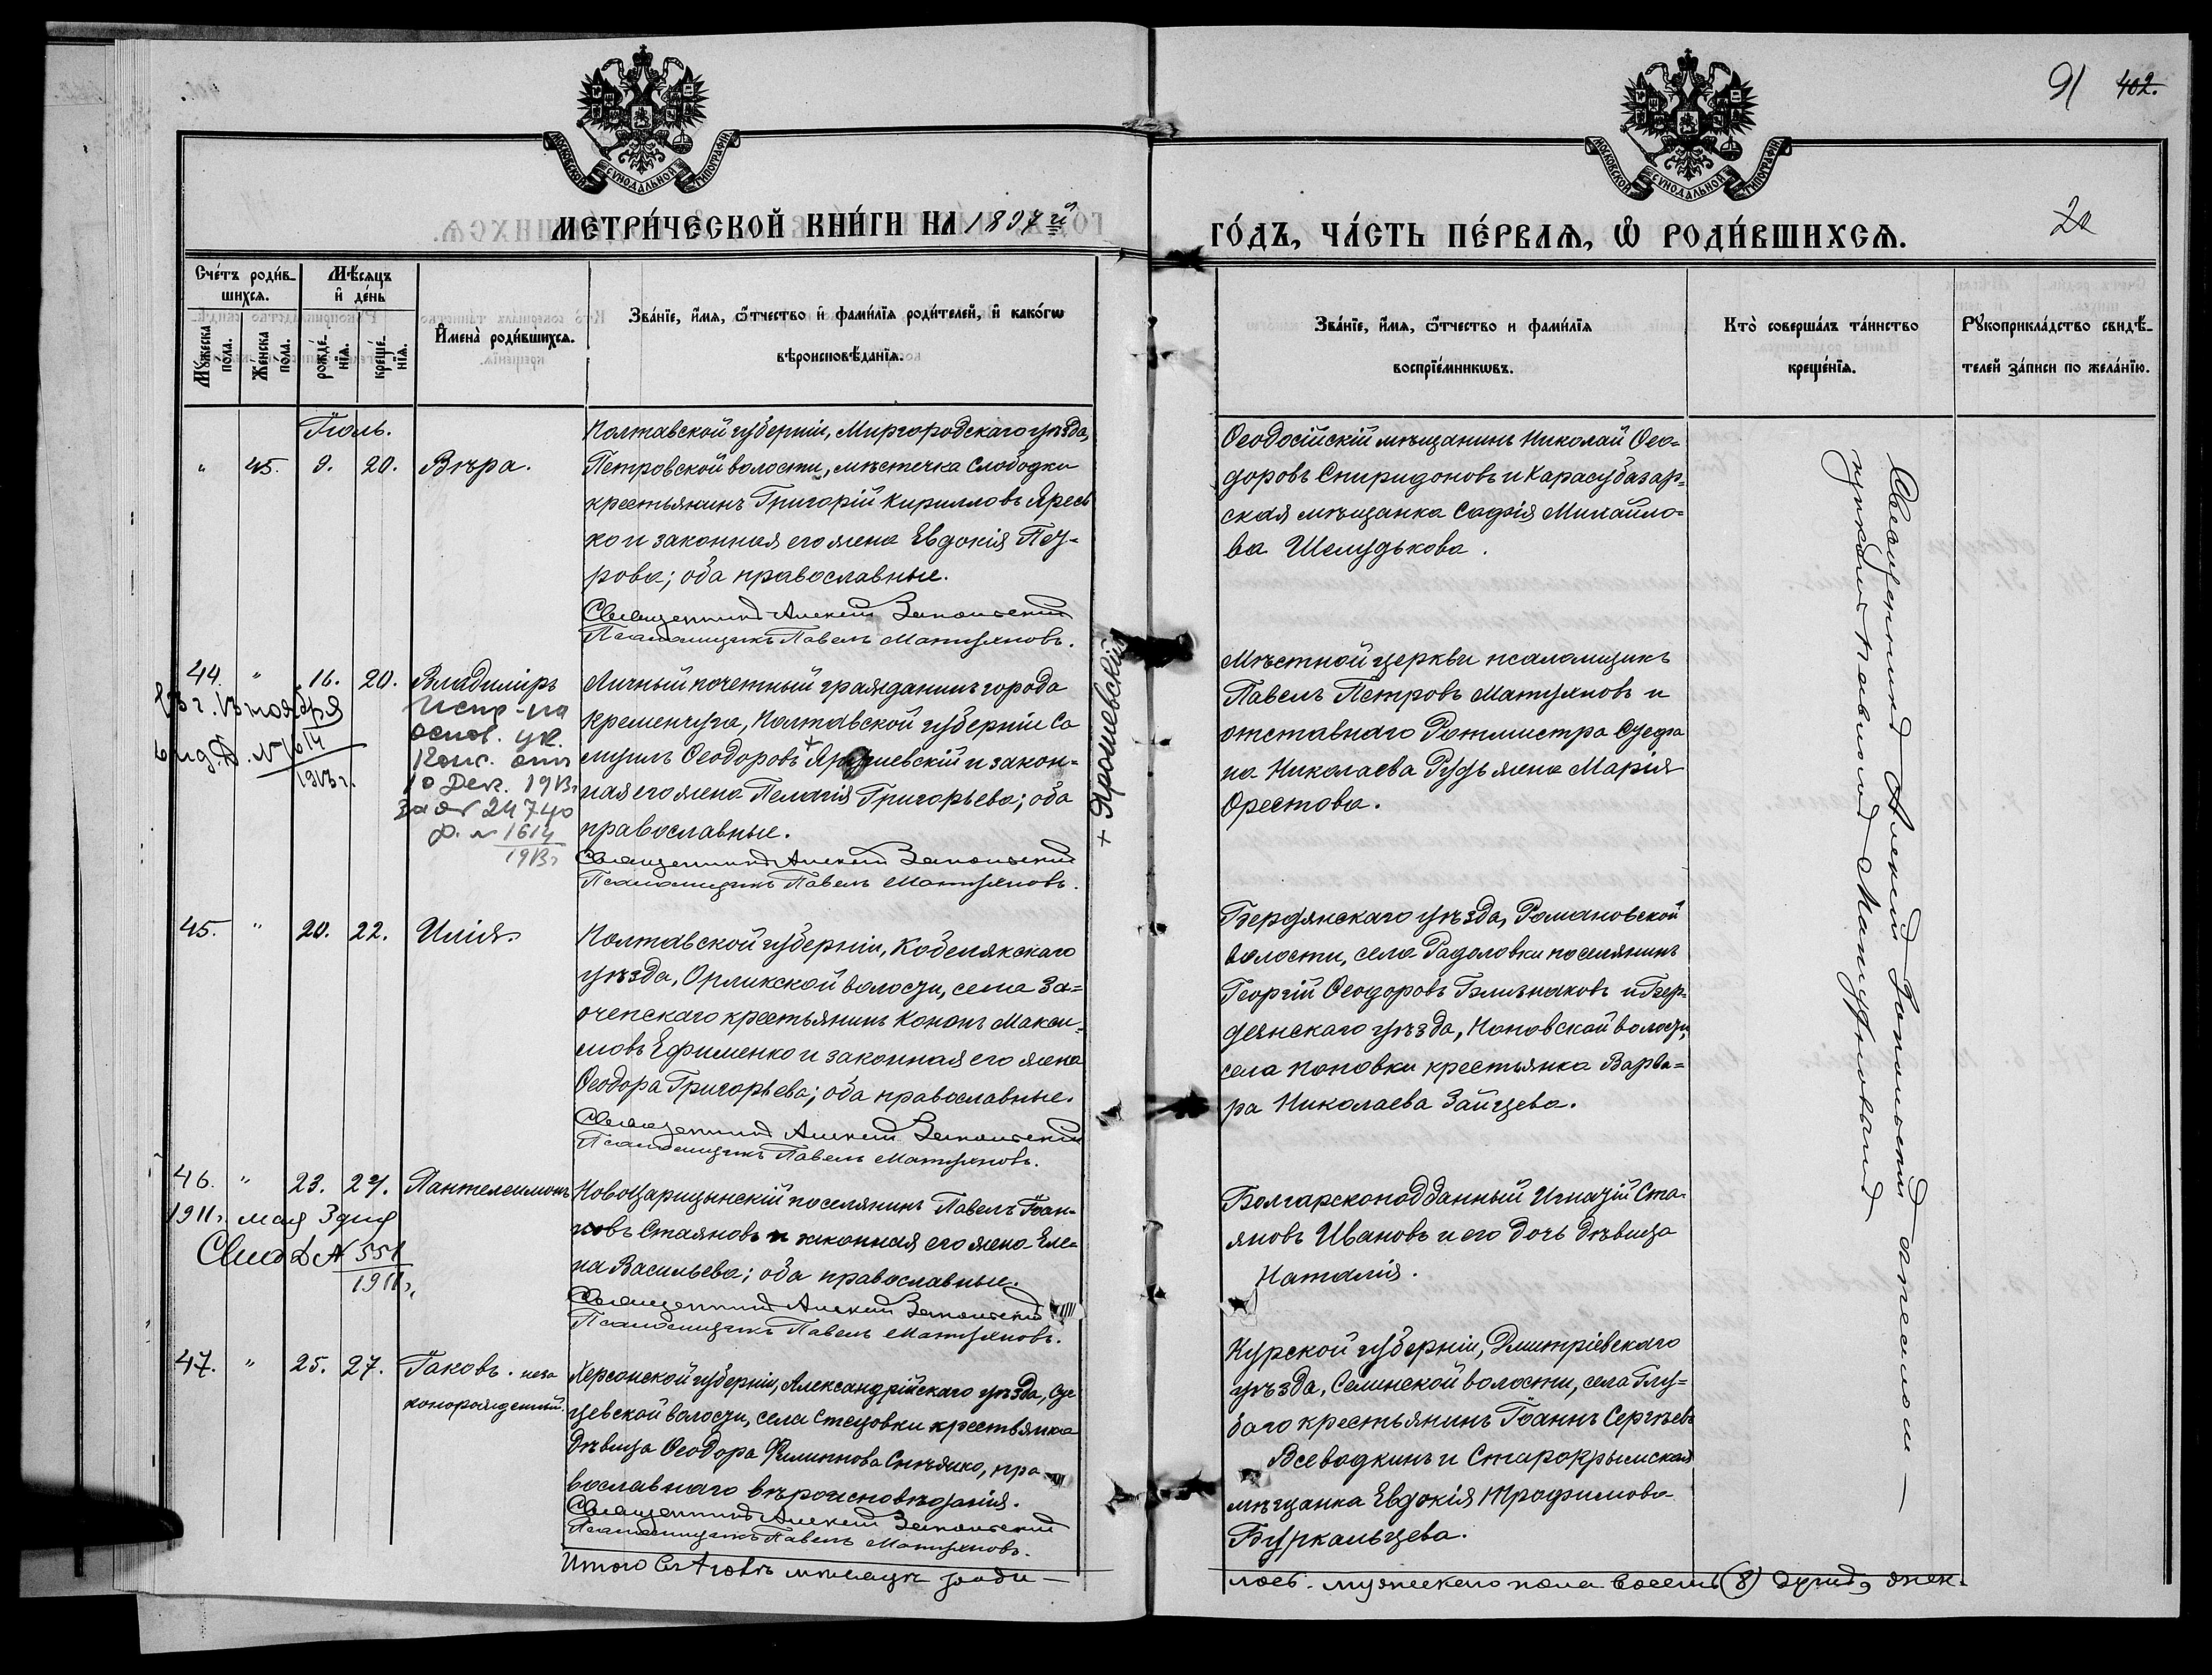 91 402.
20
МОСКОВСКОЙ СѴНОДАЛЬНОЙ ТИПОГРАФІИ
МОСКОВСКОЙ СѴНОДАЛЬНОЙ ТИПОГРАФІИ
МЕТРИ́ЧЕСКОЙ КНИ́ГИ НА 1897й
ГО́ДЪ, ЧА́СТЬ ПЕ́РВАЯ, Ѽ РОДИ́ВШИХСЯ.
Сче́тъ роди́в-
шихся.
Мѣ́сяцъ
и҆ де́нь
Мꙋ́жеска по́ла.
Же́нска по́ла.
рожде́нїя.
креще́нїя.
И҆мена̀ роди́вшихся.
Зва́нїе, и҆́мя, ѻ҆́тчество и҆ фами́лїя роди́телей, и҆ како́гѡ
вѣроисповѣ́данїя.
Зва́нїе, и҆́мя, ѻ҆́тчество и фами́лїя
воспрїе́мникѡвъ.
Кто̀ соверша́лъ та́инство
креще́нїя.
Рꙋкоприкла́дство свидѣ́-
телей за́писи по жела́нїю.
Іюль.
" 45. 9. 20. Вѣра.
Полтавской губерніи, Миргородскаго уѣзда,
Петровской волости, мѣстечка Слободки
крестьянинъ Григорій Кирилловъ Яресь
ко и законная его жена Евдокія Пет-
рова; оба православные.
Священникъ Алексій Запольскій
Псаломщикъ Павелъ Матуяновъ.
Ѳеодосійскій мѣщанинъ Николай Ѳео-
доровъ Спиридоновъ и Карасубазар-
ская мѣщанка Софія Михайло-
ва Шелудькова.
44. " 16. 20. Владиміръ
13 ноября
№ 1614
1913 г.
Испр. на
основ. ук.
Конс. отъ
10 Дек. 1913 г.
за № 24740
д. № 1614
1913 г.
Личный почетный гражданинъ города
Кременчуга, Полтавской губерніи Са
муилъ Ѳеодоровъ + Яромиевскій и закон-
ная его жена Пелагія Григорьева; оба
православные.
Священникъ Алексій Запольскій
Псаломщикъ Павелъ Матуяновъ.
+ Яромевскій
Мѣстной церкви псаломщикъ
Павелъ Петровъ Матуяновъ и
отставнаго Ротмистра Стефа
на Николаева Рудь жена Марія
Орестова.
45. " 20. 22. Илія.
Полтавской губерніи, Кобелякскаго
уѣзда, Орликской волости, села За-
очепскаго крестьянинъ Кононъ Макси-
мовъ Ефименко и законная его жена
Ѳеодора Григорьева; оба православные.
Священникъ Алексій Запольскій
Псаломщикъ Павелъ Матуяновъ.
Бердянскаго уѣзда, Романовской
волости, села Радоловки поселянинъ
Георгій Ѳеодоровъ Близнаковъ и Бер-
дянскаго уѣзда, Поповской волости,
села Поповки крестьянка Варва-
ра Николаева Зайцева.
46. " 23. 27. Пантелеимонъ
1911 г. мая 3 дня
Свид. № 551
1911 г.
Новоцарицынскій поселянинъ Павелъ Іоан-
новъ Стояновъ и законная его жена Еле-
на Васильева; оба православные.
Священникъ Алексій Запольскій
Псаломщикъ Павелъ Матуяновъ.
Болгарскоподданный Игнатій Сто-
яновъ Ивановъ и его дочь дѣвица
Наталія.
47. " 25. 27. Іаковъ. неза
конорожденный.
Херсонской губерніи, Александрійскаго уѣзда,
цевской волости, села Стецовки крестьянка
дѣвица Ѳеодора Филиппова Снѣжко, пра
вославнаго вѣроисповѣданія.
Священникъ Алексій Запольскій
Псаломщикъ Павелъ Матуяновъ.
Курской губерніи, Дмитріевскаго
уѣзда, Селинской волости, села Глу-
баго крестьянинъ Іоаннъ Сергѣевъ
Всеводкинъ и Старокрымская
мѣщанка Евдокія Трофимова
Буркальцева.
Священникъ Алексій Запольскій съ псалом-
щикомъ Павломъ Матуяновымъ
Итого въ мѣсяцѣ роди-
лось мужескаго пола восемь (8) душъ, жен.